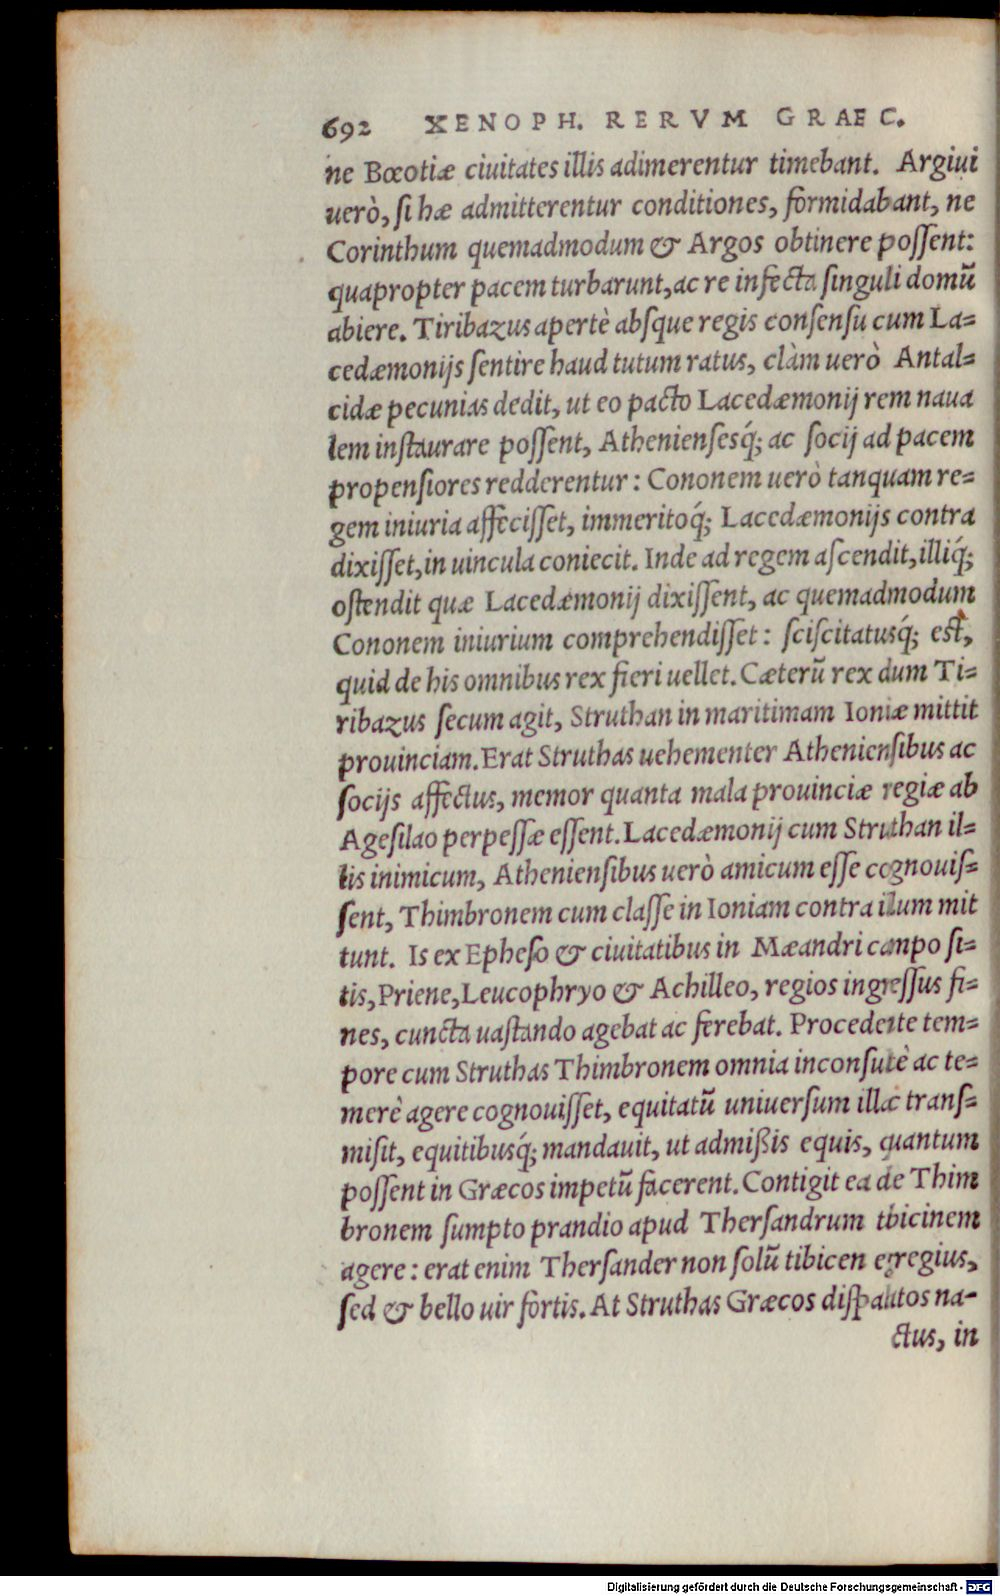 692 XENOPH. RERVM GRAEC.
ne Bœotiæ ciuitates illis adimerentur timebant. Argiui
uerò, si hæ admitterentur conditiones, formidabant, ne
Corinthum quemadmodum & Argos obtinere possent:
quapropter pacem turbarunt, ac re infecta singuli domũ
abiere. Tiribazus apertè absque regis consensu cum La=
cedæmonijs sentire haud tutum ratus, clàm uerò Antal=
cidæ pecunias dedit, ut eo pacto Lacedæmonij rem naua
lem instaurare possent, Atheniensesq́; ac socij ad pacem
propensiores redderentur: Cononem uerò tanquam re=
gem iniuria affecisset, immeritoq́; Lacedæmonijs contra
dixisset, in uincula coniecit. Inde ad regem ascendit, illiq́;
ostendit quæ Lacedæmonij dixissent, ac quemadmodum
Cononem iniurium comprehendisset: sciscitatusq́; est,
quid de his omnibus rex fieri uellet. Cæterũ rex dum Ti=
ribazus secum agit, Struthan in maritimam Ioniæ mittit
prouinciam. Erat Struthas uehementer Atheniensibus ac
socijs affectus, memor quanta mala prouinciæ regiæ ab
Agesilao perpessæ essent. Lacedæmonij cum Struthan il=
lis inimicum, Atheniensibus uerò amicum esse cognouis=
sent, Thimbronem cum classe in Ioniam contra illum mit
tunt. Is ex Epheso & ciuitatibus in Mæandri campo si=
tis, Priene, Leucophryo & Achilleo, regios ingressus fi=
nes, cuncta uastando agebat ac ferebat. Procedente tem=
pore cum Struthas Thimbronem omnia inconsultè ac te=
merè agere cognouisset, equitatũ uniuersum illàc trans=
misit, equitibusq́; mandauit, ut admißis equis, quantum
possent in Græcos impetũ facerent. Contigit ea de Thim
bronem sumpto prandio apud Thersandrum tibicinem
agere: erat enim Thersander non solũ tibicen egregius,
sed & bello uir fortis. At Struthas Græcos dispalatos na-
ctus, in
Digitalisierung gefördert durch die Deutsche Forschungsgemeinschaft - DFG